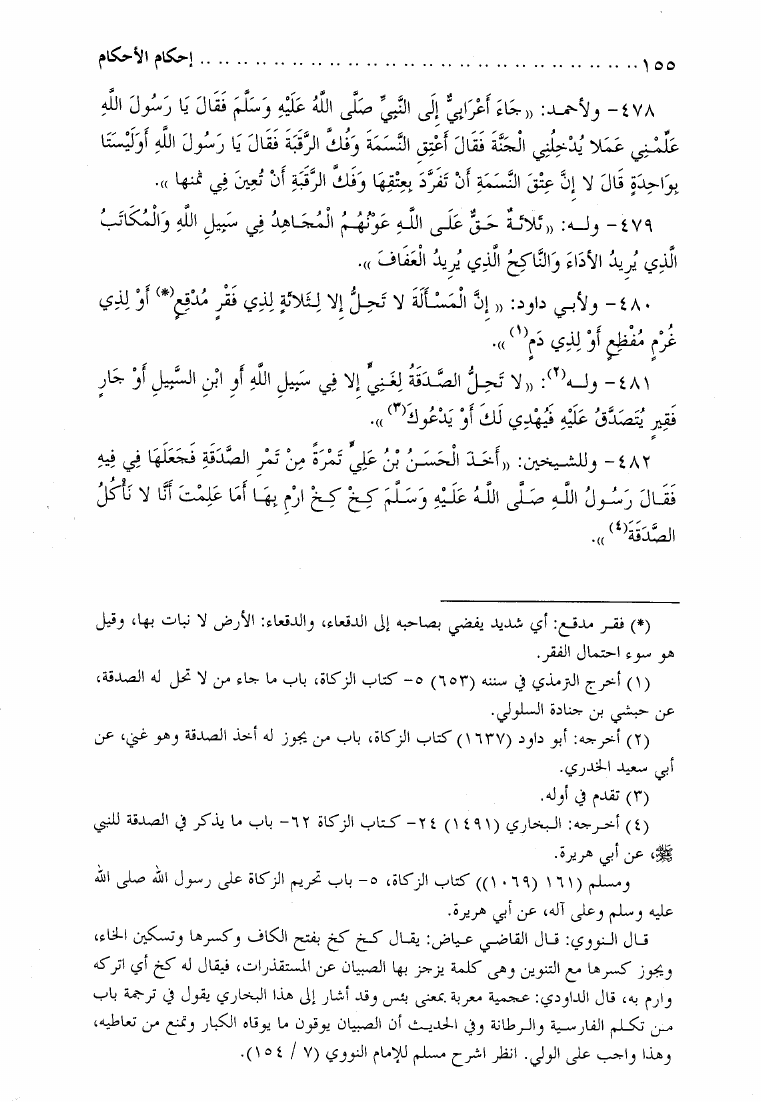 ١٥٥ .................................................. إحكام الأحكام
٤٧٨- ولأحمد: «جَاءَ أَعْرَابِيٌّ إِلَى النَّبِيِّ صَلَّى اللَّهُ عَلَيْهِ وَسَلَّمَ فَقَالَ يَا رَسُولَ اللَّهِ
عَلِّمْنِي عَمَلا يُدْخِلُنِي الْجَنَّةَ فَقَالَ أَعْتِقِ النَّسَمَةَ وَفُكَّ الرَّقَبَةَ فَقَالَ يَا رَسُولَ اللَّهِ أَوَلَيْسَتَا
بِوَاحِدَةٍ قَالَ لا إِنَّ عِتْقَ النَّسَمَةِ أَنْ تَفَرَّدَ بِعِتْقِهَا وَفَكَّ الرَّقَبَةِ أَنْ تُعِينَ فِي ثمنها ».
٤٧٩- ولـه: «ثَلاثَـةٌ حَـقٌّ عَلَـى اللَّـهِ عَوْنُهُـمُ الْمُجَـاهِدُ فِي سَبِيلِ اللَّهِ وَالْمُكَاتَبُ
الَّذِي يُرِيدُ الأدَاءَ وَالنَّاكِحُ الَّذِي يُرِيدُ الْعَفَافَ ».
٤٨٠- ولأبـي داود: « إِنَّ الْمَسْـأَلَةَ لا تَحِـلُّ إِلا لِـثَلاثَةٍ لِذِي فَقْرٍ مُدْقِعٍ(*) أَوْ لِذِي
غُرْمٍ مُفْظِعٍ أَوْ لِذِي دَمٍ(١) ».
٤٨١- ولـه(٢): «لا تَحِـلُّ الصَّـدَقَةُ لِغَنِيٍّ إِلا فِي سَبِيلِ اللَّهِ أَوِ ابْنِ السَّبِيلِ أَوْ جَارٍ
فَقِيرٍ يُتَصَدَّقُ عَلَيْهِ فَيُهْدِي لَكَ أَوْ يَدْعُوكَ(٣) ».
٤٨٢- وللشـيخين: «أَخَـذَ الْحَسَـنُ بْـنُ عَلِيٍّ تَمْرَةً مِنْ تَمْرِ الصَّدَقَةِ فَجَعَلَهَا فِي فِيهِ
فَقَـالَ رَسُـولُ اللَّـهِ صَـلَّى اللَّـهُ عَلَيْـهِ وَسَـلَّمَ كِـخْ كِـخْ ارْمِ بِهَـا أَمَا عَلِمْتَ أَنَّا لا نَأْكُلُ
الصَّدَقَةَ(٤) ».
(*) فقـر مدقـع: أي شديد يفضي بصاحبه إلى الدقعاء، والدقعاء: الأرض لا نبات بها، وقيل
هو سوء احتمال الفقر.
(١) أخـرج الترمذي في سننه (٦٥٣) ٥- كتاب الزكاة، باب ما جاء من لا تحل له الصدقة،
عن حبشي بن جنادة السلولي.
(٢) أخرجه: أبو داود (١٦٣٧) كتاب الزكاة، باب من يجوز له أخذ الصدقة وهو غني، عن
أبي سعيد الخدري.
(٣) تقدم في أوله.
(٤) أخـرجه: الـبخاري (١٤٩١) ٢٤- كـتاب الزكاة ٦٢- باب ما يذكر في الصدقة للنبي
ﷺ، عن أبي هريرة.
ومسلم (١٦١ (١٠٦٩)) كتاب الزكاة، ٥- باب تحريم الزكاة على رسول الله صلى الله
عليه وسلم وعلى آله، عن أبي هريرة.
قـال الـنووي: قـال القاضـي عـياض: يقـال كـخ كخ بفتح الكاف وكسرها وتسكين الخاء،
ويجوز كسرها مع التنوين وهى كلمة يزجر بها الصبيان عن المستقذرات، فيقال له كخ أي اتركه
وارم به، قال الداودي: عجمية معربة بمعنى بئس وقد أشار إلى هذا البخاري يقول في ترجمة باب
مـن تكـلم الفارسـية والـرطانة وفي الحديـث أن الصبيان يوقون ما يوقاه الكبار وتمنع من تعاطيه،
وهذا واجب على الولي. انظر اشرح مسلم للإمام النووي (٧ / ١٥٤).